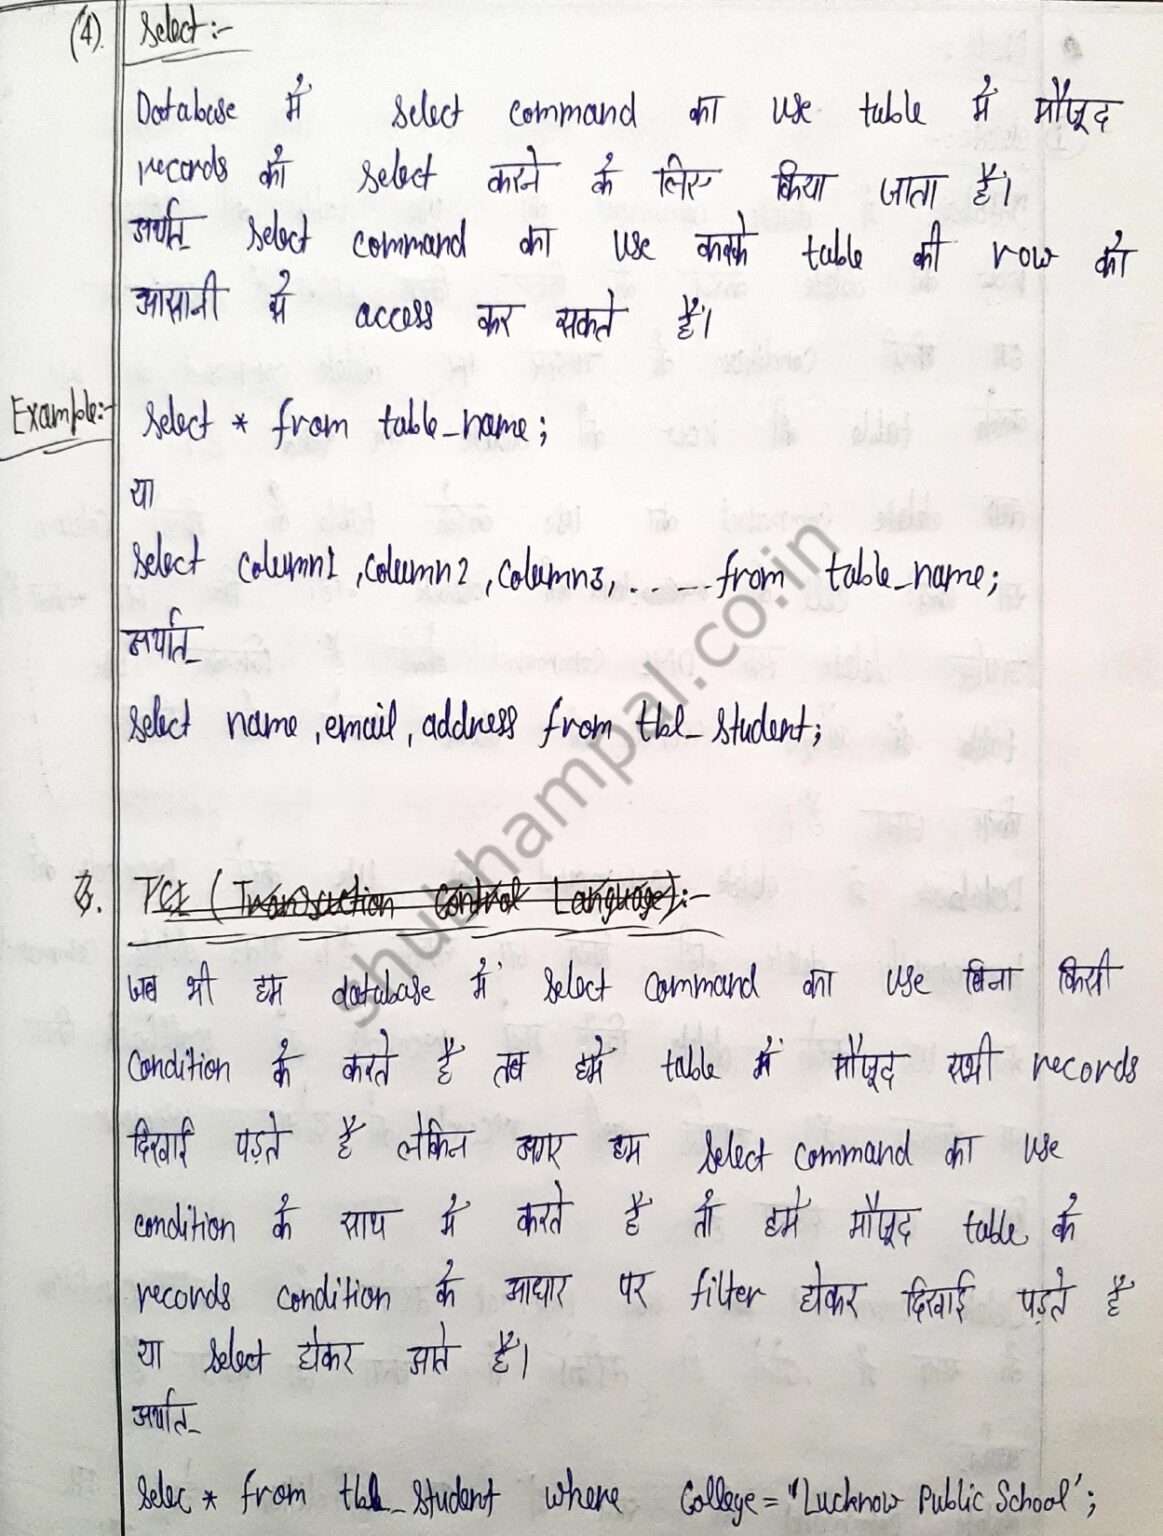 (4). Select:-
Database में select command का use table में मौजूद
records को select करने के लिए किया जाता है।
अर्थात- select command का use करके table की row को
आसानी से access कर सकते हैं।
Example:- select * from table_name;
या
select column1, column2, column3, ...... from table_name;
अर्थात-
select name, email, address from tbl_student;
TCL (Transaction Control Language):-
जब भी हम database में select command का use बिना किसी
condition के करते है तब हमें table में मौजूद सभी records
दिखाई पड़ते है लेकिन अगर हम select command का use
condition के साथ में करते है तो हमें मौजूद table के
records condition के आधार पर filter होकर दिखाई पड़ते है
या select होकर आते है।
अर्थात-
selec * from tbl_student where College = "Lucknow Public School';
shubhampal.co.in